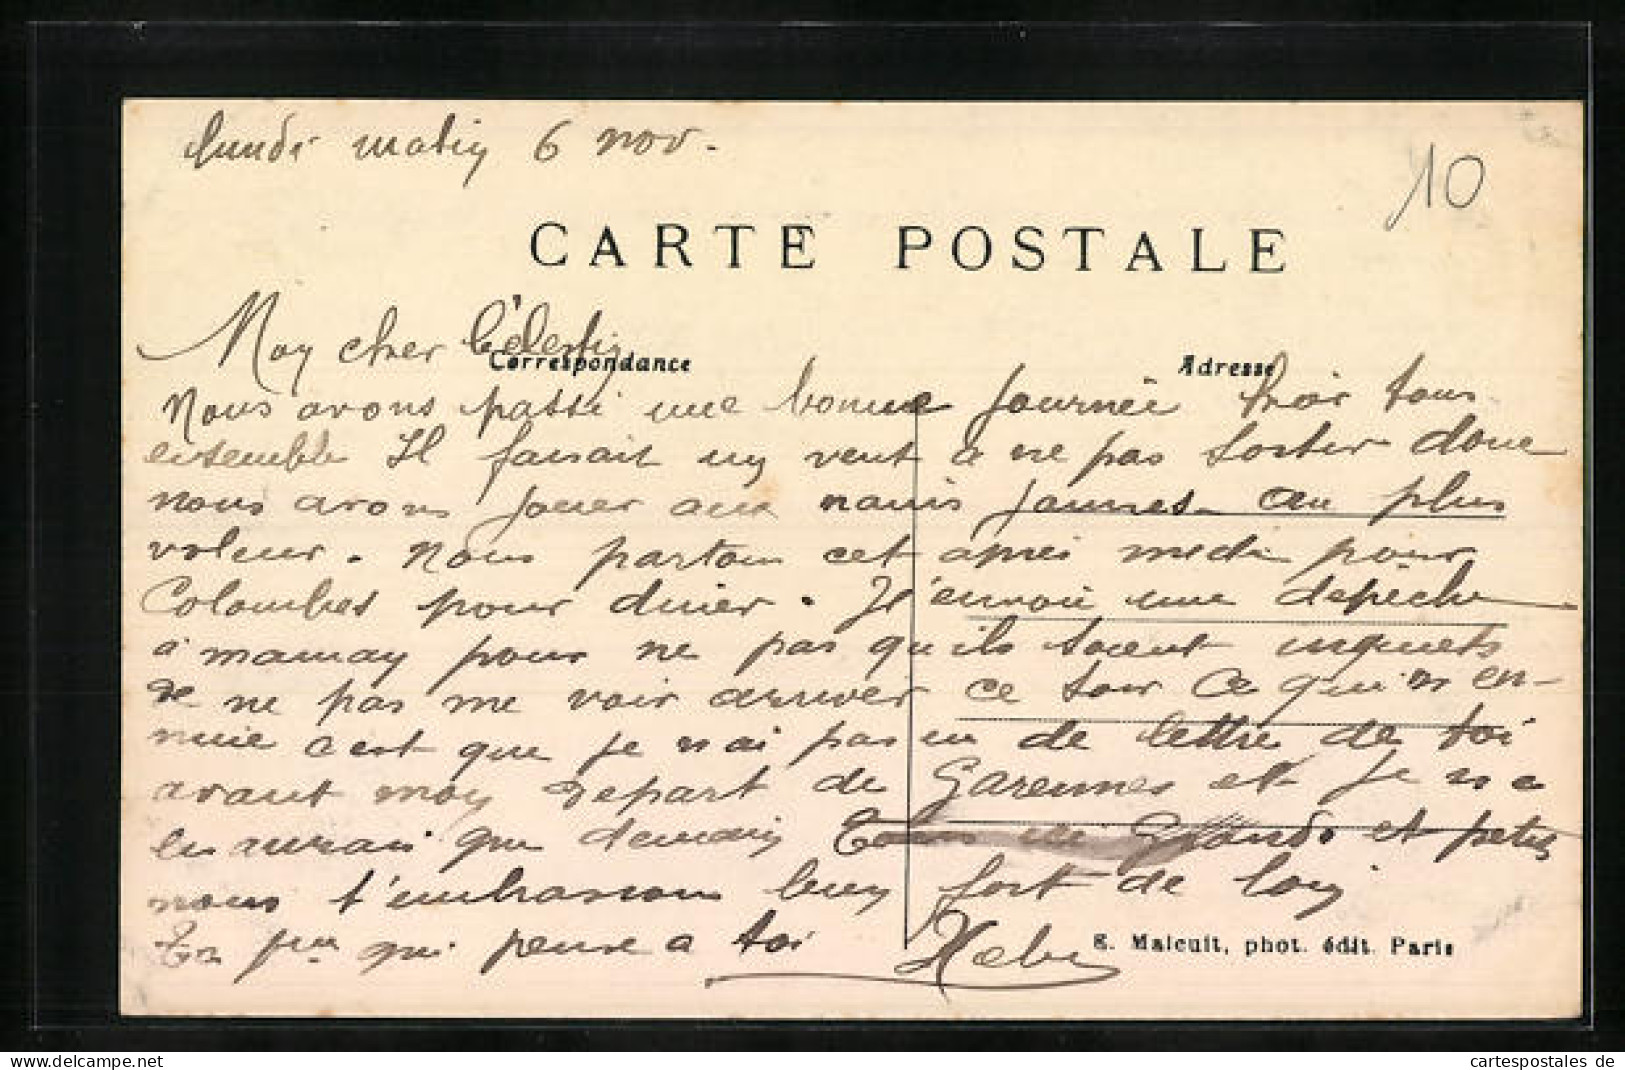 lundi matin 6 nov.
10
CARTE POSTALE
Mon cher Célestin
Correspondance
Adresse
Nous avons passé une bonne journée hier tous
ensemble Il faisait un vent a ne pas sortir donc
nous avons jouer aux nains jaunes au plus
voleur. Nous partons cet apres midi pour
Colombes pour diner. J'envoie une depeche
a maman pour ne pas qu'ils soient inquiets
de ne pas me voir arriver ce soir Ce qui m en-
nuie c est que je n ai pas eu de lettre de toi
avant mon Depart de Garennes et je n
en aurai que demain Tous Grands et petits
nous t'embrassons bien fort de loin
Ta qui pense a toi
E. Malcuit, phot. édit. Paris
cartespostales de